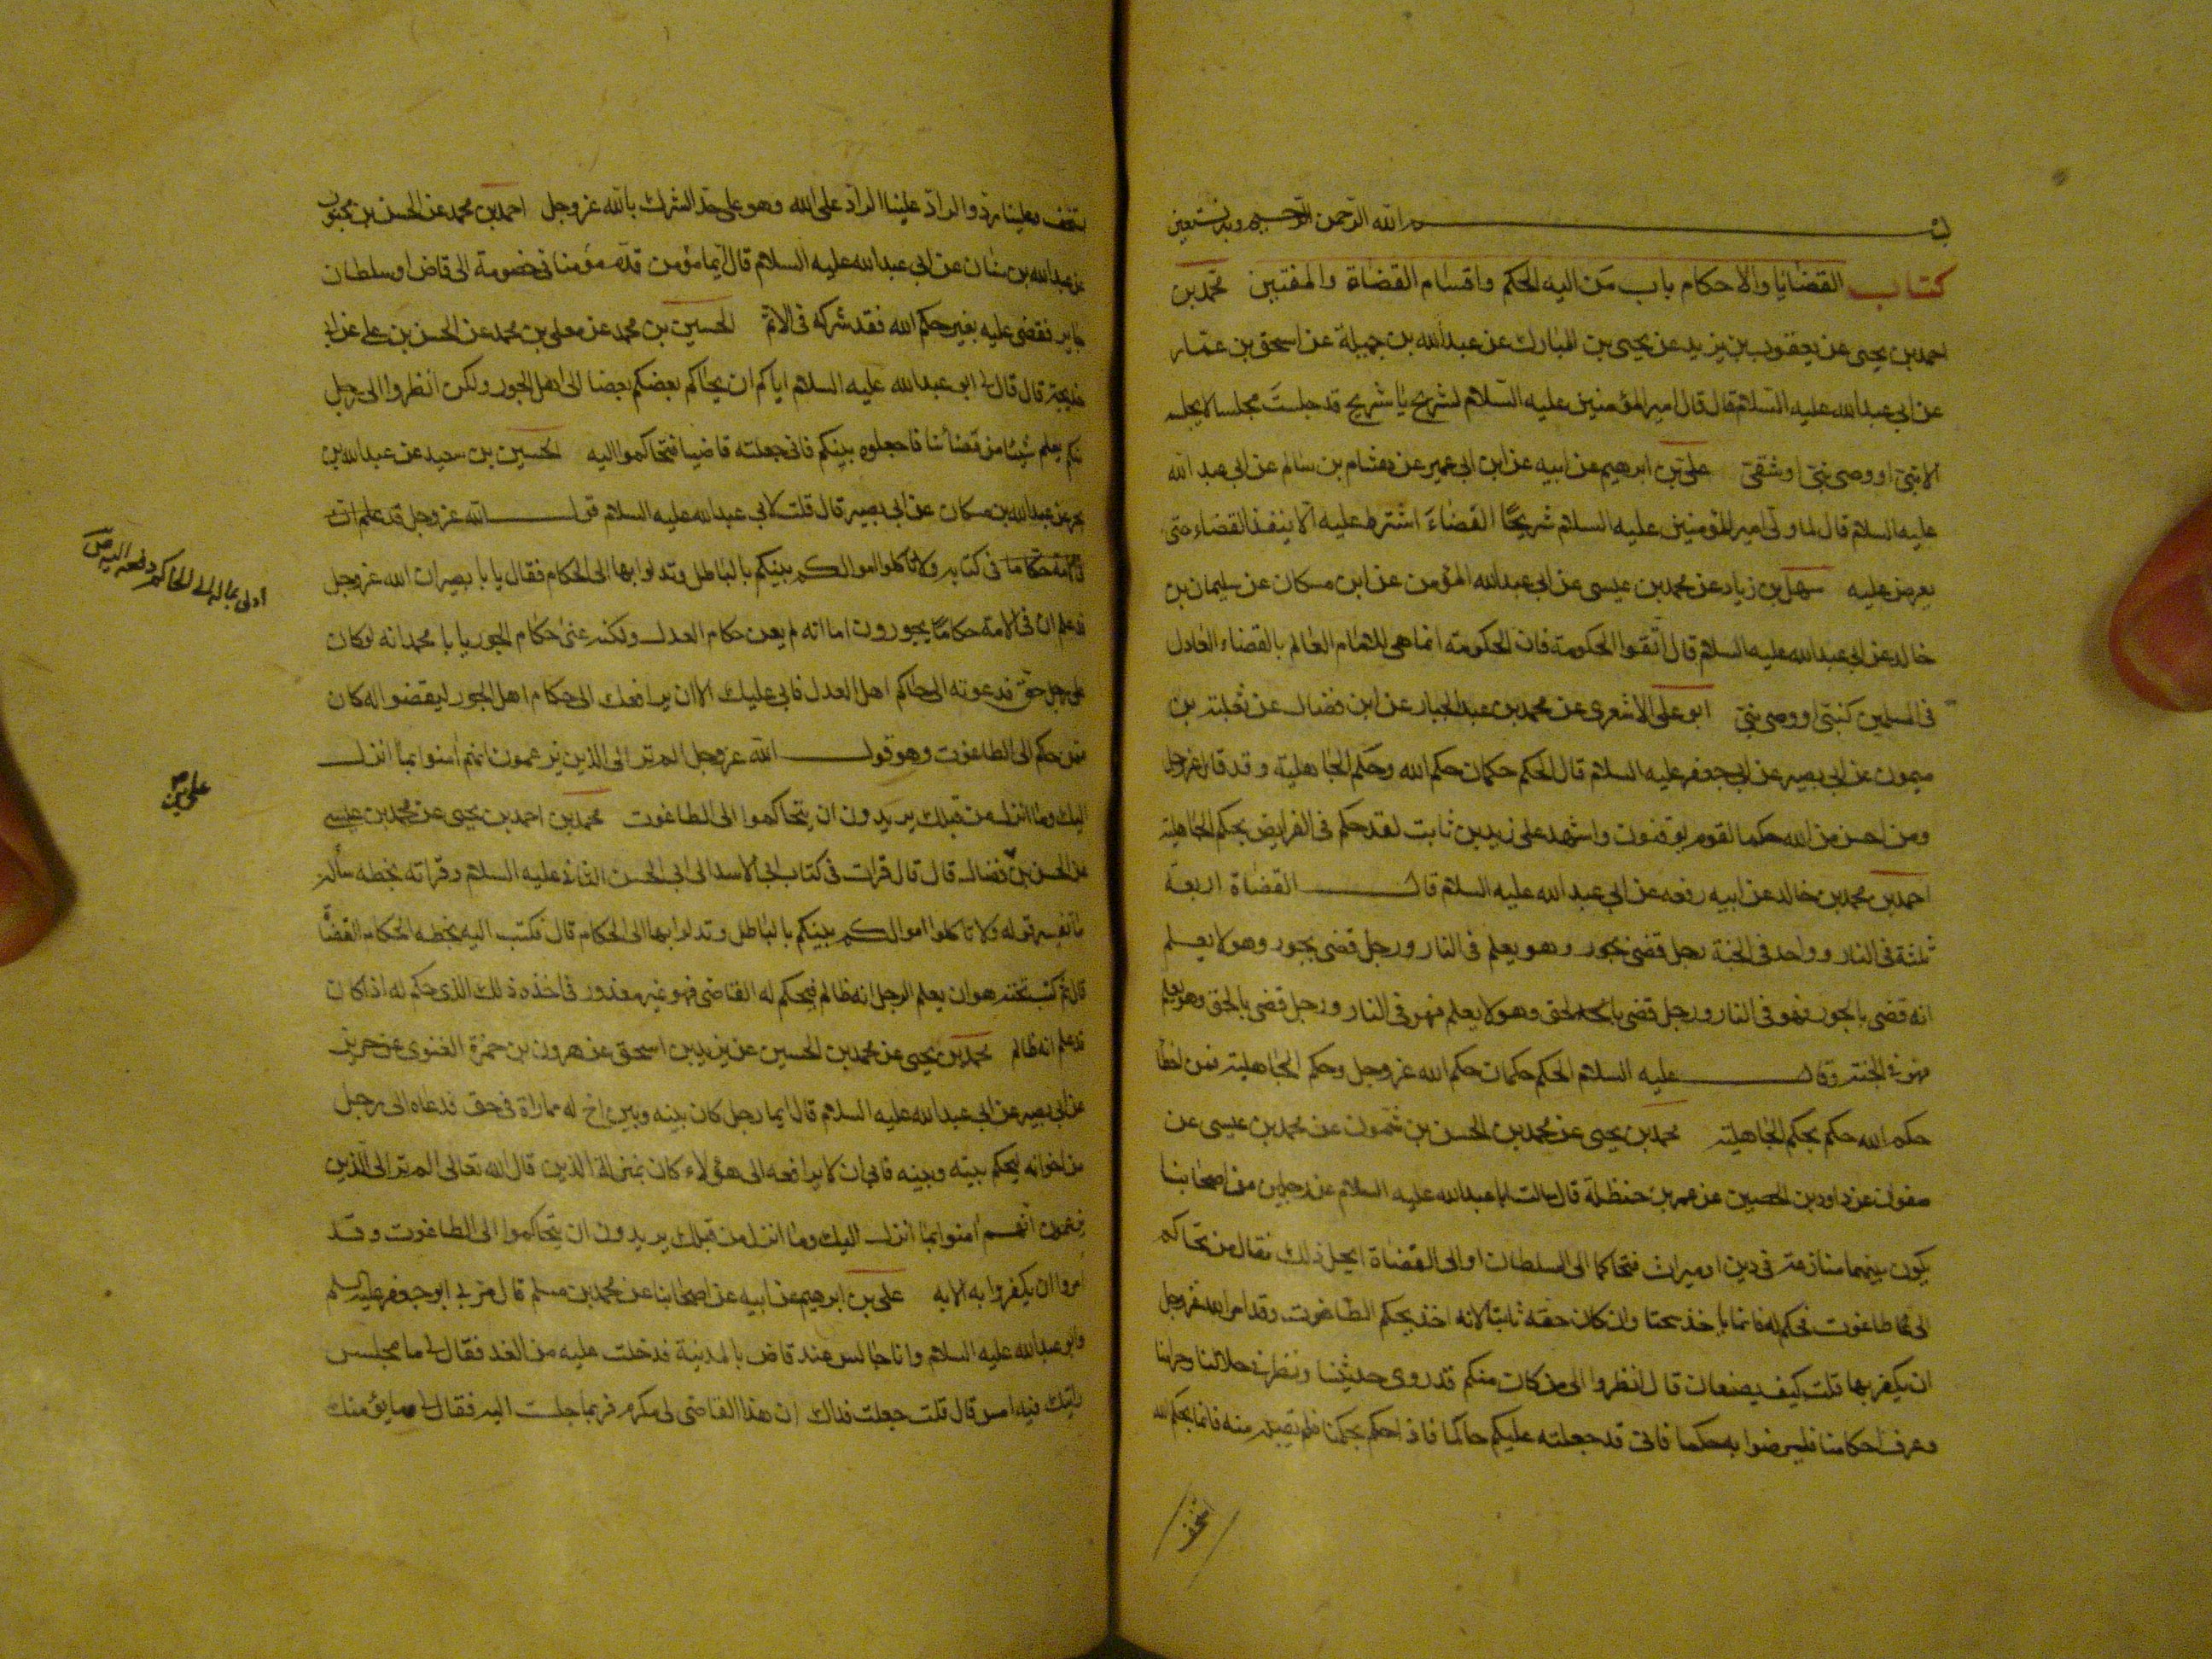 بسم الله الرحمن الرحيم وبه نستعين
كتاب القضايا والاحكام باب من اليه الحكم واقسام القضاة والمفتين محمد بن
احمد بن يحيى عن يعقوب بن يزيد عن يحيى بن المبارك عن عبد الله بن جبلة عن اسحق بن عمار
عن ابي عبد الله عليه السلام قال قال امير المؤمنين عليه السلام لشريح يا شريح قد جلست مجلسا لا يجلسه
الا نبي او وصي نبي او شقي علي بن ابرهيم عن ابيه عن ابن ابي عمير عن هشام بن سالم عن ابي عبد الله
عليه السلام قال لما ولى امير المؤمنين عليه السلام شريحا القضاء اشترط عليه الا ينفذ القضاء حتى
يعرض عليه سهل بن زياد عن محمد بن عيسى عن ابي عبد الله المؤمن عن ابن مسكان عن سليمان بن
خالد عن ابي عبد الله عليه السلام قال اتقوا الحكومة فان الحكومة انما هي للامام العالم بالقضاء العادل
في المسلمين كنبي او وصي نبي ابو علي الاشعري عن محمد بن عبد الجبار عن ابن فضال عن ثعلبة بن
ميمون عن ابي بصير عن ابي جعفر عليه السلام قال الحكم حكمان حكم الله وحكم الجاهلية وقد قال عز وجل
ومن احسن من الله حكما لقوم يوقنون واشهد على زيد بن ثابت لقد حكم في الفرايض بحكم الجاهلية
احمد بن محمد بن خالد عن ابيه رفعه عن ابي عبد الله عليه السلام قال القضاة اربعة
ثلثة في النار وواحد في الجنة رجل قضى بجور وهو يعلم في النار ورجل قضى بجور وهو لا يعلم
انه قضى بالجور فهو في النار ورجل قضى بالحق وهو لا يعلم فهو في النار ورجل قضى بالحق وهو يعلم
فهو في الجنة وقال عليه السلام الحكم حكمان حكم الله عز وجل وحكم الجاهلية فمن اخطأ
حكم الله حكم بحكم الجاهلية محمد بن يحيى عن محمد بن الحسن بن شمون عن محمد بن عيسى عن
صفوان عن داود بن الحصين عن عمر بن حنظلة قال سالت ابا عبد الله عليه السلام عن رجلين من اصحابنا
يكون بينهما منازعة في دين او ميراث فتحاكما الى السلطان او الى القضاة ايحل ذلك فقال من تحاكم
الى طاغوت فحكم له فانما ياخذ سحتا وان كان حقه ثابتا لانه اخذ بحكم الطاغوت وقد امر الله عز وجل
ان يكفر بها قلت كيف يصنعان قال انظروا الى من كان منكم قد روى حديثنا ونظر في حلالنا وحرامنا
وعرف احكامنا فليرضوا به حكما فاني قد جعلته عليكم حاكما فاذا حكم بحكمنا فلم يقبله منه فانما بحكم الله
استخف وعلينا رد والراد علينا الراد على الله وهو على حد الشرك بالله عز وجل احمد بن محمد عن الحسن بن محبوب
عن عبد الله بن سنان عن ابي عبد الله عليه السلام قال ايما مؤمن قدم مؤمنا في خصومة الى قاض او سلطان
جاير فقضى عليه بغير حكم الله فقد شركه في الاثم الحسين بن محمد عن معلى بن محمد عن الحسن بن علي عن ابي
خديجة قال قال لي ابو عبد الله عليه السلام اياكم ان يحاكم بعضكم بعضا الى اهل الجور ولكن انظروا الى رجل
منكم يعلم شيئا من قضائنا فاجعلوه بينكم فاني جعلته قاضيا فتحاكموا اليه الحسين بن سعيد عن عبد الله بن
بحر عن عبد الله بن مسكان عن ابي بصير قال قلت لابي عبد الله عليه السلام قول الله عز وجل قد علم ان
في الامة حكاما في كتابه ولا تاكلوا اموالكم بينكم بالباطل وتدلوا بها الى الحكام فقال يا با بصير ان الله عز وجل
قد علم ان في الامة حكاما يجورون اما انه لم يعن حكام العدل ولكنه عنى حكام الجور يا با محمد انه لو كان
على رجل حق فدعوته الى حاكم اهل العدل فابى عليك الا ان يرافعك الى حكام اهل الجور ليقضوا له كان
ممن حكم الى الطاغوت وهو قول الله عز وجل الم تر الى الذين يزعمون انهم امنوا بما انزل
اليك وما انزل من قبلك يريدون ان يتحاكموا الى الطاغوت محمد بن احمد بن يحيى عن محمد بن عيسى
عن الحسن بن فضال قال قال قرات في كتاب ابي الاسد الى ابي الحسن الثاني عليه السلام وقراته بخطه سأله
ما تفسير قوله ولا تاكلوا اموالكم بينكم بالباطل وتدلوا بها الى الحكام قال فكتب اليه بخطه الحكام القضاة
قال ثم كتب تحته هو ان يعلم الرجل انه ظالم فيحكم له القاضي فهو غير معذور في اخذه ذلك الذي حكم له اذا كان
قد علم انه ظالم محمد بن يحيى عن محمد بن الحسين عن يزيد بن اسحق عن هرون بن حمزة الغنوي عن حريز
عن ابي بصير عن ابي عبد الله عليه السلام قال ايما رجل كان بينه وبين اخ له مماراة في حق فدعاه الى رجل
من اخوانه ليحكم بينه وبينه فابى ان لا يرافعه الى هؤلاء كان بمنزلة الذين قال الله تعالى الم تر الى الذين
يزعمون انهم امنوا بما انزل اليك وما انزل من قبلك يريدون ان يتحاكموا الى الطاغوت وقد
امروا ان يكفروا به الايه علي بن ابرهيم عن ابيه عن اصحابنا عن محمد بن مسلم قال مر بي ابو جعفر عليه السلم
وابو عبد الله عليه السلام وانا جالس عند قاض بالمدينة فدخلت عليه من الغد فقال لي ما مجلس
رايتك فيه امس قال قلت جعلت فداك ان هذا القاضي لي مكرم فربما جلست اليه فقال لي وما يؤمنك
ادلى بماله الى الحاكم دفعه اليه ص
علي بن